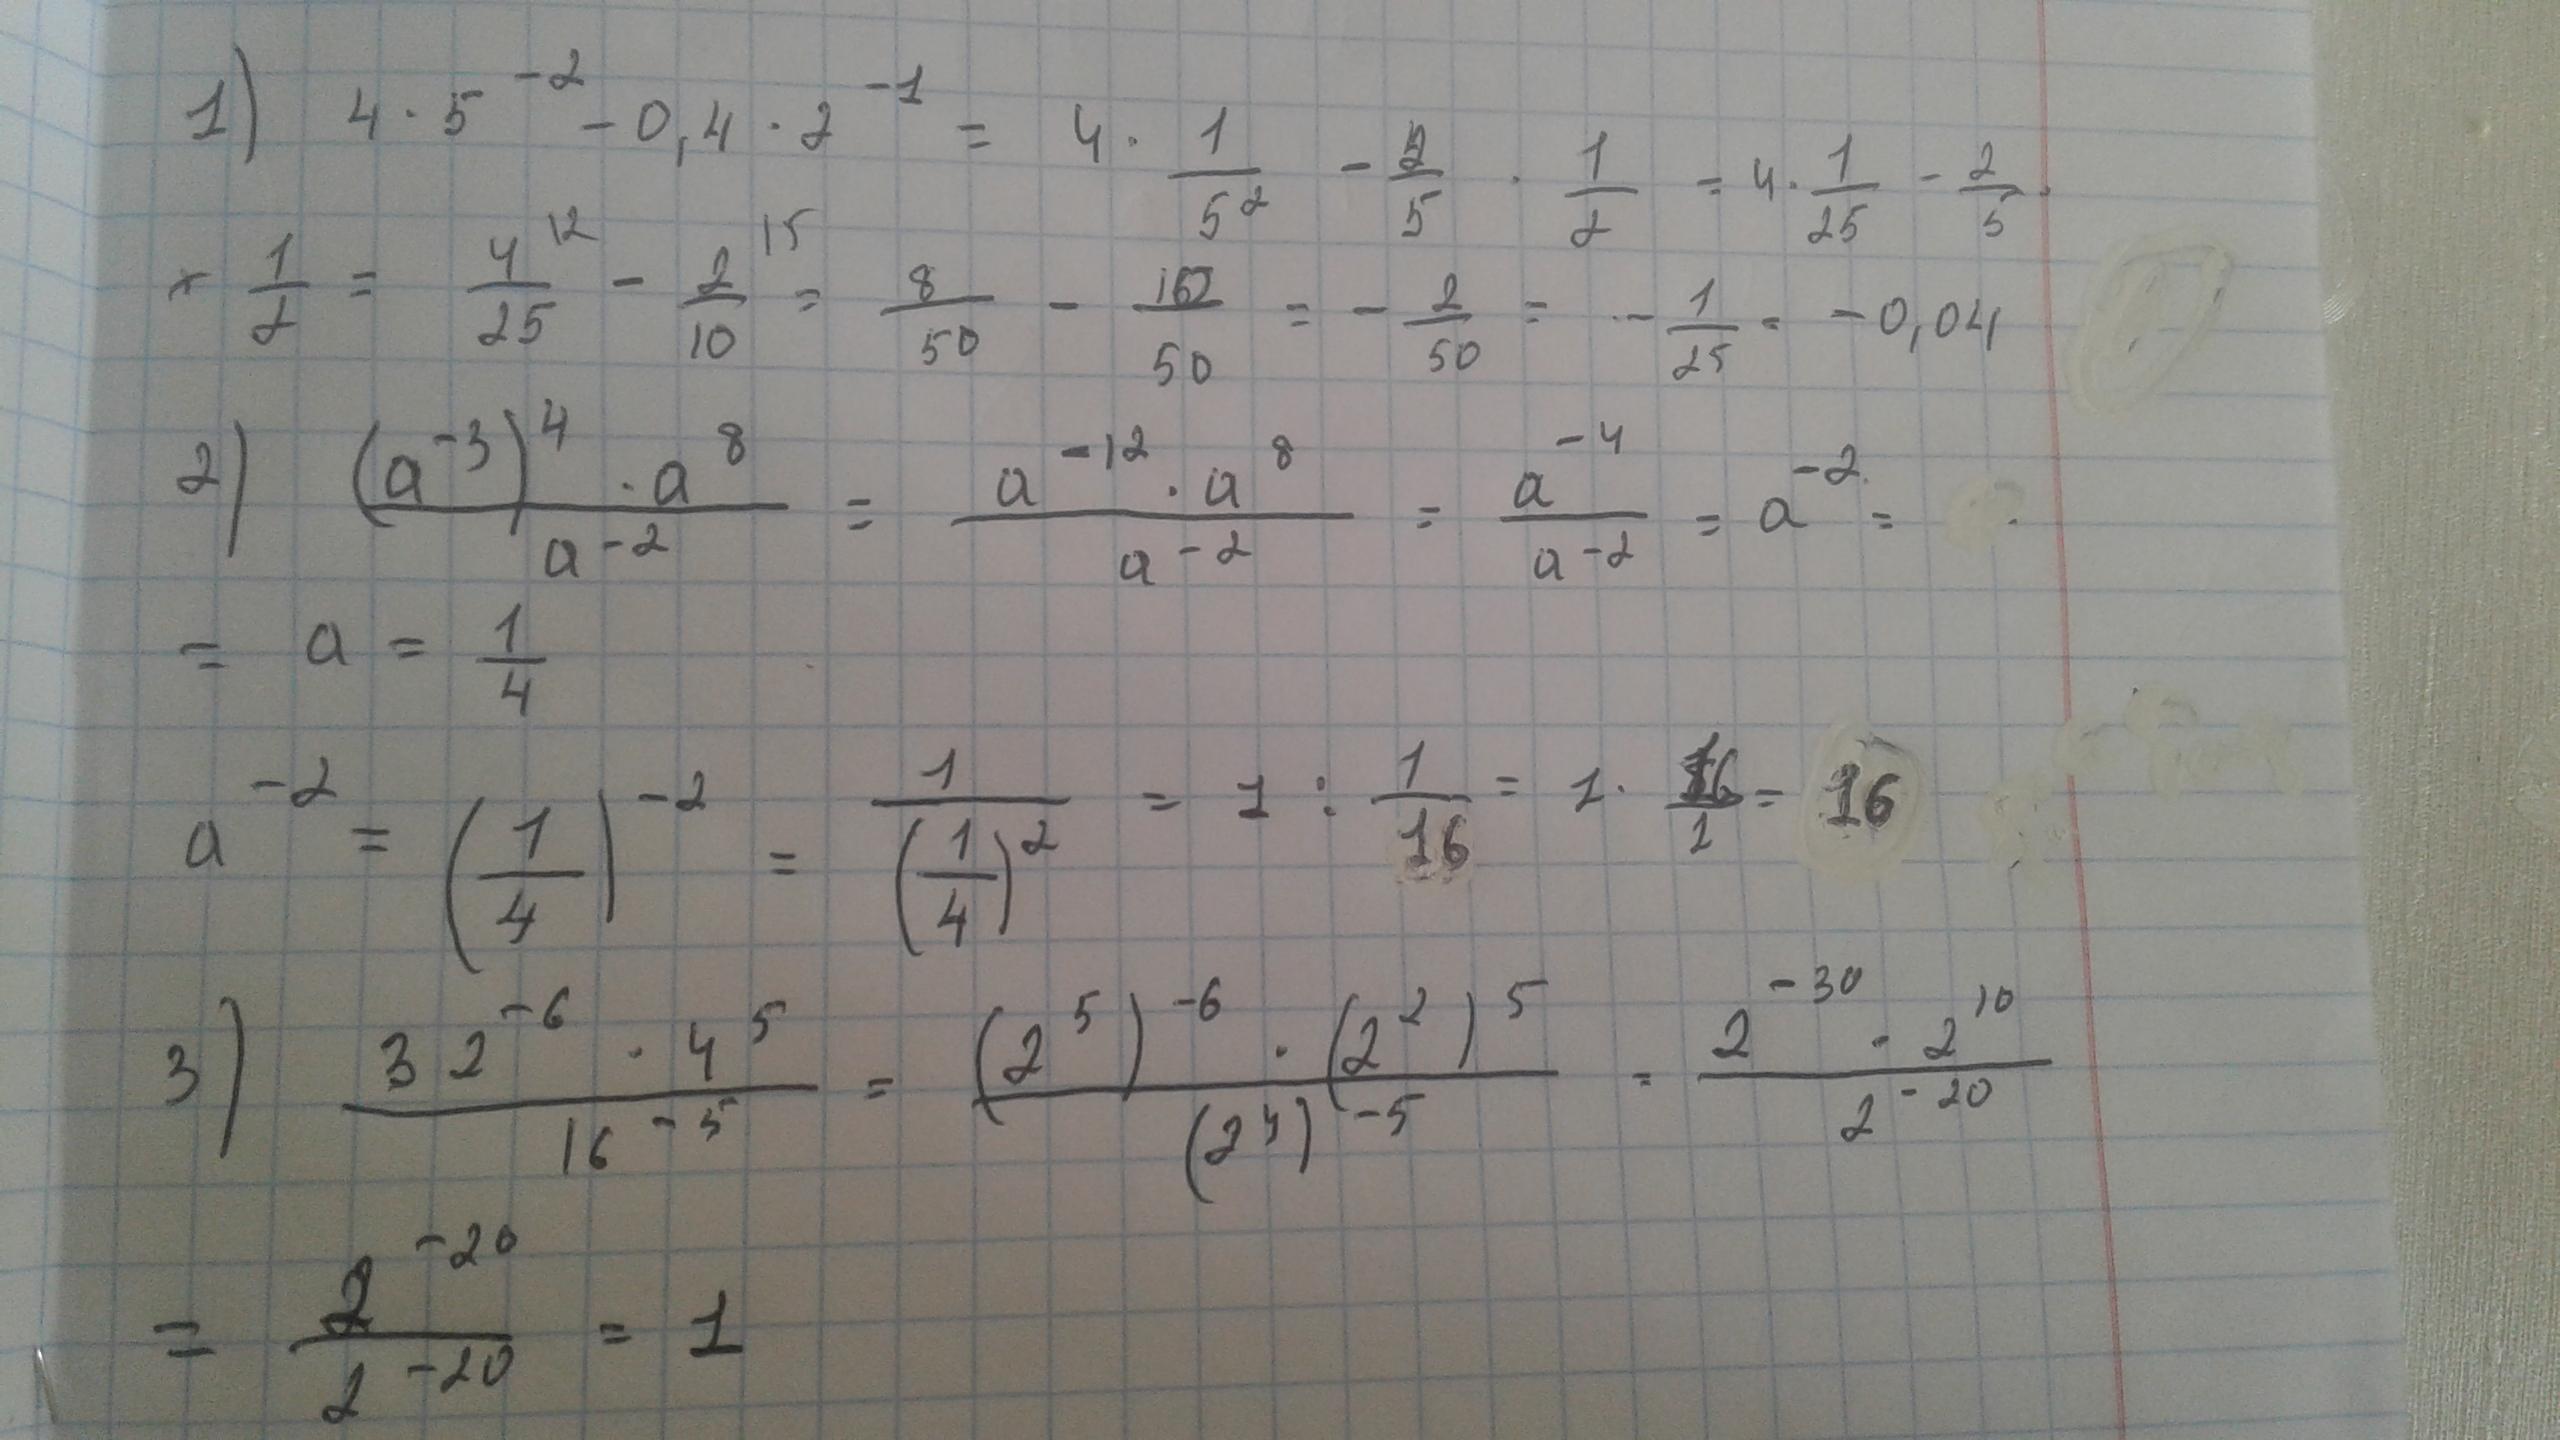 1) 4 · 5^-2 - 0,4 · 2^-1 = 4 · 1/5^2 - 2/5 · 1/2 = 4 · 1/25 - 2/5 ·
× 1/2 = 4/25 |2 - 2/10 |5 = 8/50 - 10/50 = - 2/50 = - 1/25 = -0,04
2) (a^-3)^4 · a^8 / a^-2 = a^-12 · a^8 / a^-2 = a^-4 / a^-2 = a^-2 =
= a = 1/4
a^-2 = (1/4)^-2 = 1/(1/4)^2 = 1 : 1/16 = 1 · 16/1 = 16
3) 32^-6 · 4^5 / 16^-5 = (2^5)^-6 · (2^2)^5 / (2^4)^-5 = 2^-30 · 2^10 / 2^-20
= 2^-20 / 2^-20 = 1